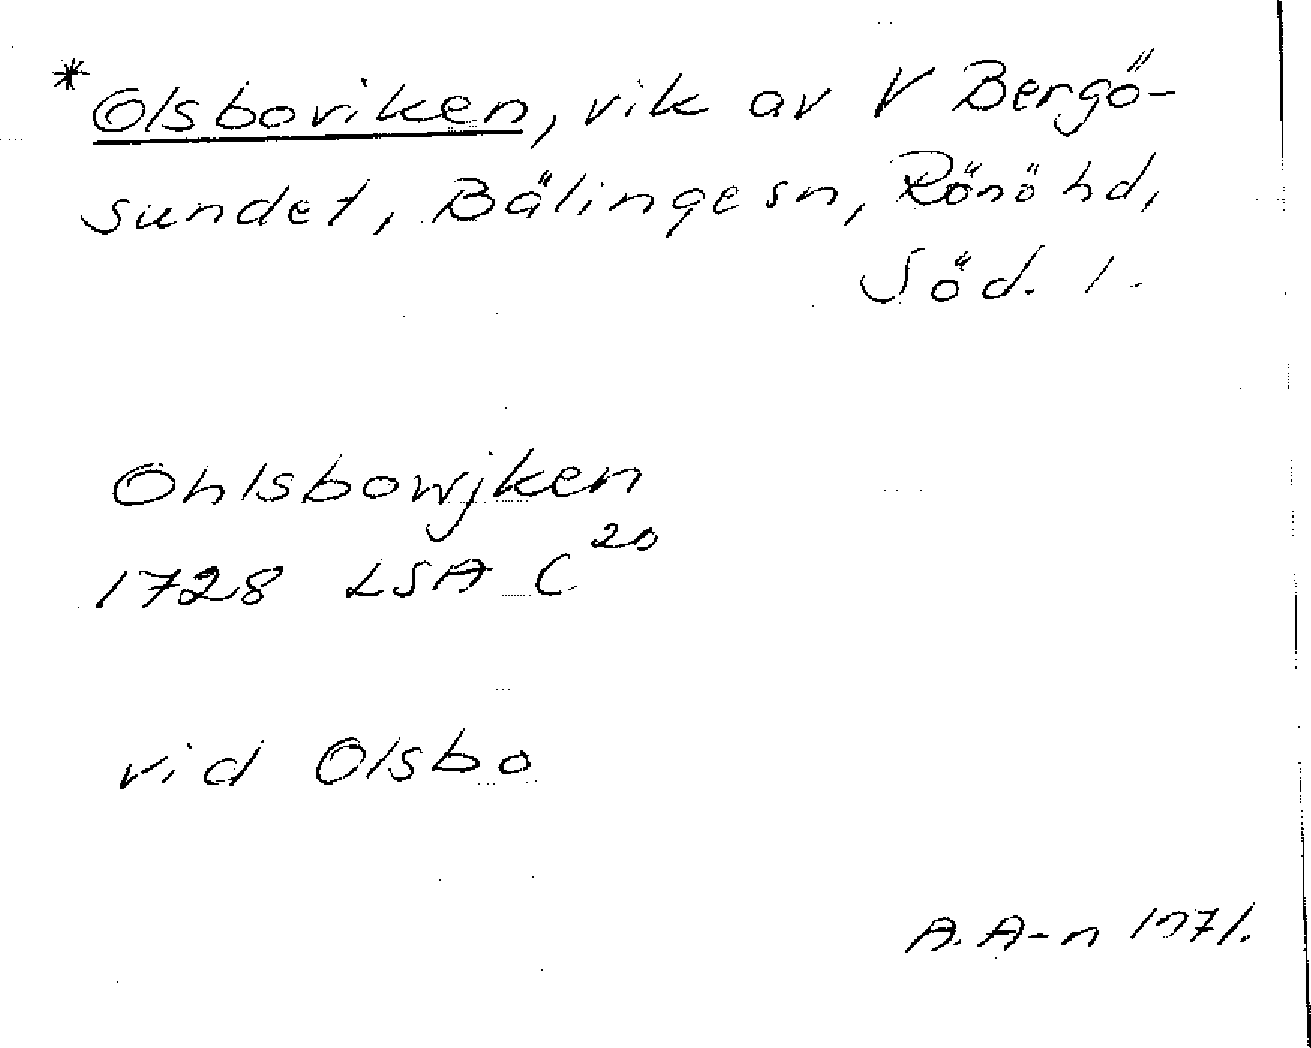 *Olsboviken, vik av V Bergö-
sundet, Bälinge sn, Rönö hd,
Söd. l.
Ohlsbowjken
1728 LSA C 20
vid Olsbo
A. A-n 1971.